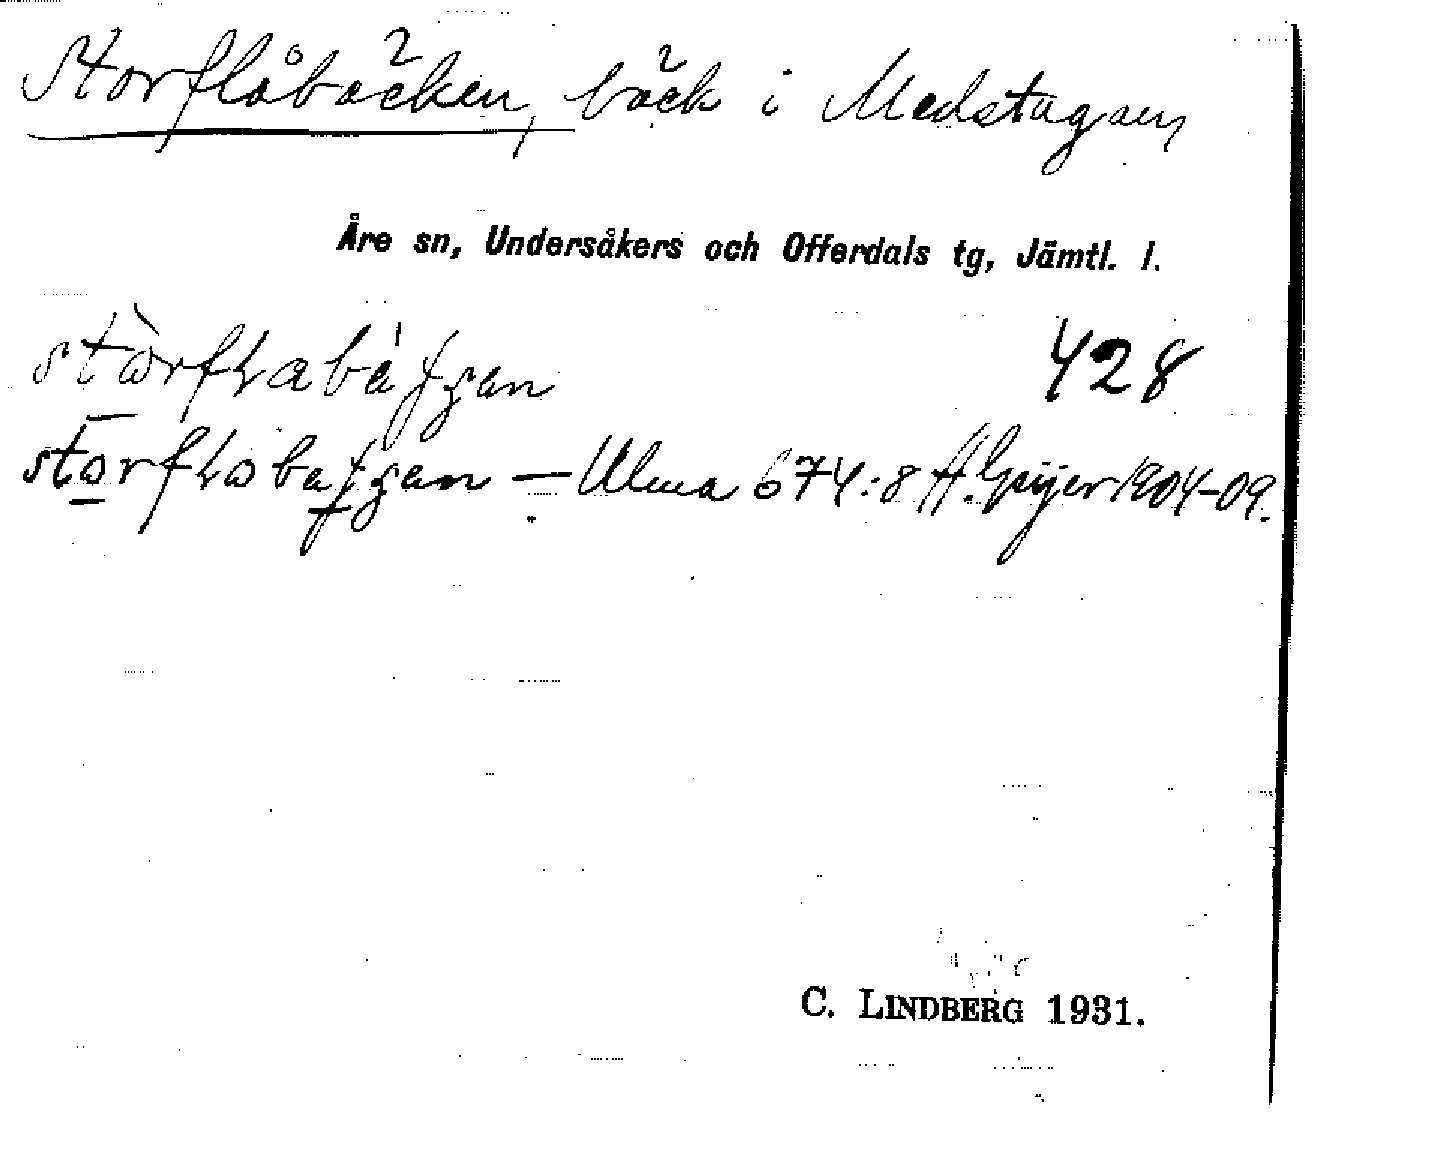 Storflåbäcken, bäck i Medstugan
Åre sn, Undersåkers och Offerdals tg, Jämtl. l.
428
— Ulma 674:8 A. Geijer 1904-09.
C. LINDBERG 1931.